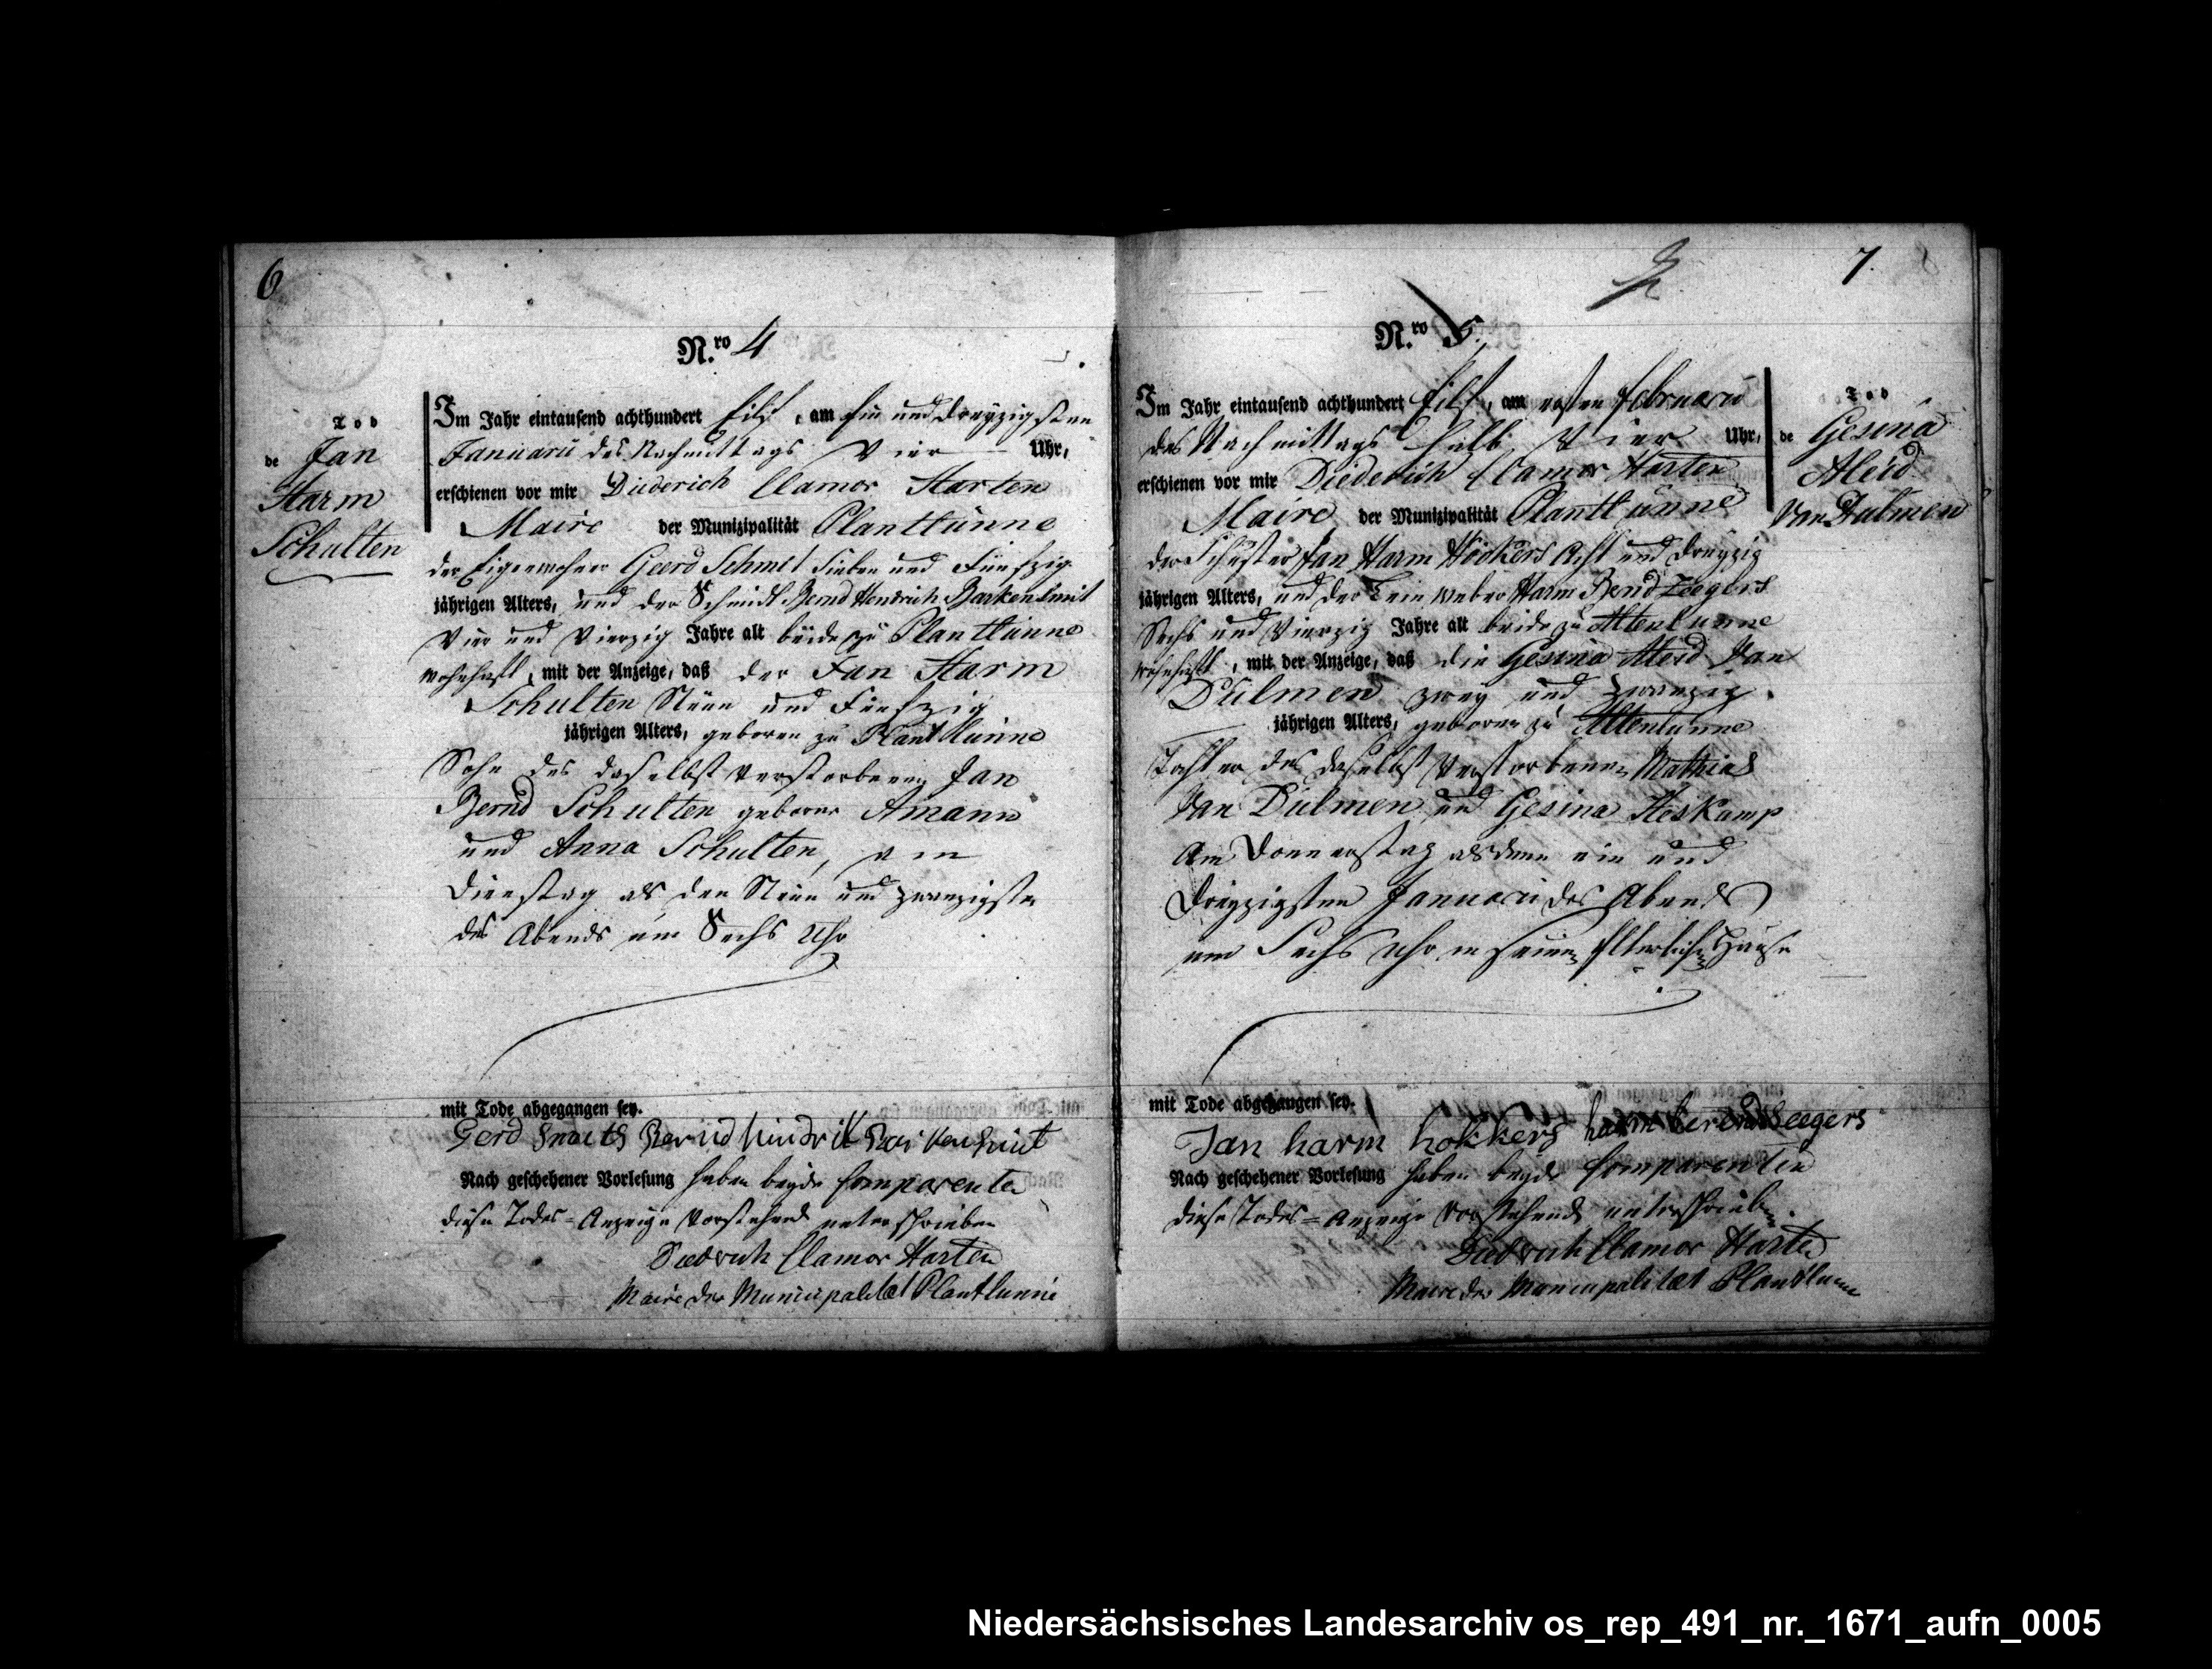 6
N.ro 4
Tod
de Jan
Harm
Schulten
Im Jahr eintausend achthundert Eilf, am Ein und dreyzigsten
Januarii des Nachmittags Vier Uhr,
erschienen vor mir Diederich Clamor Harten
Maire der Munizipalität Plantlünne
der Eigenwohner Geerd Schmit Sieben und Fünfzig
jährigen Alters, und der Schmidt Bernd Hendrich Barkenšmit
Vier und Vierzig Jahre alt beide zu Plantlünne
wohnhaft, mit der Anzeige, daß der Jan Harm
Schulten Neun und Fünfzig
jährigen Alters, geboren zu Plantlünne
Sohn des daselbst verstorbenen Jan
Bernd Schulten geborne Amann
und Anna Schulten, am
Dienstag als den Neun und zwanzigsten
des Abends um Sechs Uhr
mit Tode abgegangen sey.
Gerd Bernd hindrik
Nach geschehener Vorlesung haben beyde Comparenten
diese Todes-Anzeige Vorstehend unterschrieben
Diedrich Clamor Harten
Maire der Municipalitæt Plantlunne
7.
N.ro 5.
Tod
de Gesina
Aleid
Van Dulmen
Im Jahr eintausend achthundert Eilf, am ersten Februarii
des Nachmittags halb Vier Uhr,
erschienen vor mir Diederich Clamor Harten
Maire der Munizipalität Plantlünne
der Schuster Jan Harm Höckers Acht und dreyzig
jährigen Alters, und der Leinweber Harm Bernd Zeegers
Sechs und Vierzig Jahre alt beide zu Altenlunne
wohnhaft, mit der Anzeige, daß die Gesina Aleid Van
Dülmen zwey und zwanzig
jährigen Alters, geboren zu Altenlunne
Tochter des daselbst Verstorbenen Mathias
Van Dülmen und Gesina Heskamp
Am Donnerstag als denn ein und
Dreyzigsten Januari des Abends
um Sechs Uhr in seinen Elterlichen Hause
mit Tode abgegangen sey.
Jan harm hokkers harm berend Seegers
Nach geschehener Vorlesung haben beyde Comparenten
diese Todes-Anzeige Vorstehend unterschrieben.
Diedrich Clamor Harten
Maire der Municipalitæt Plantlunne
Niedersächsisches Landesarchiv os_rep_491_nr._1671_aufn_0005